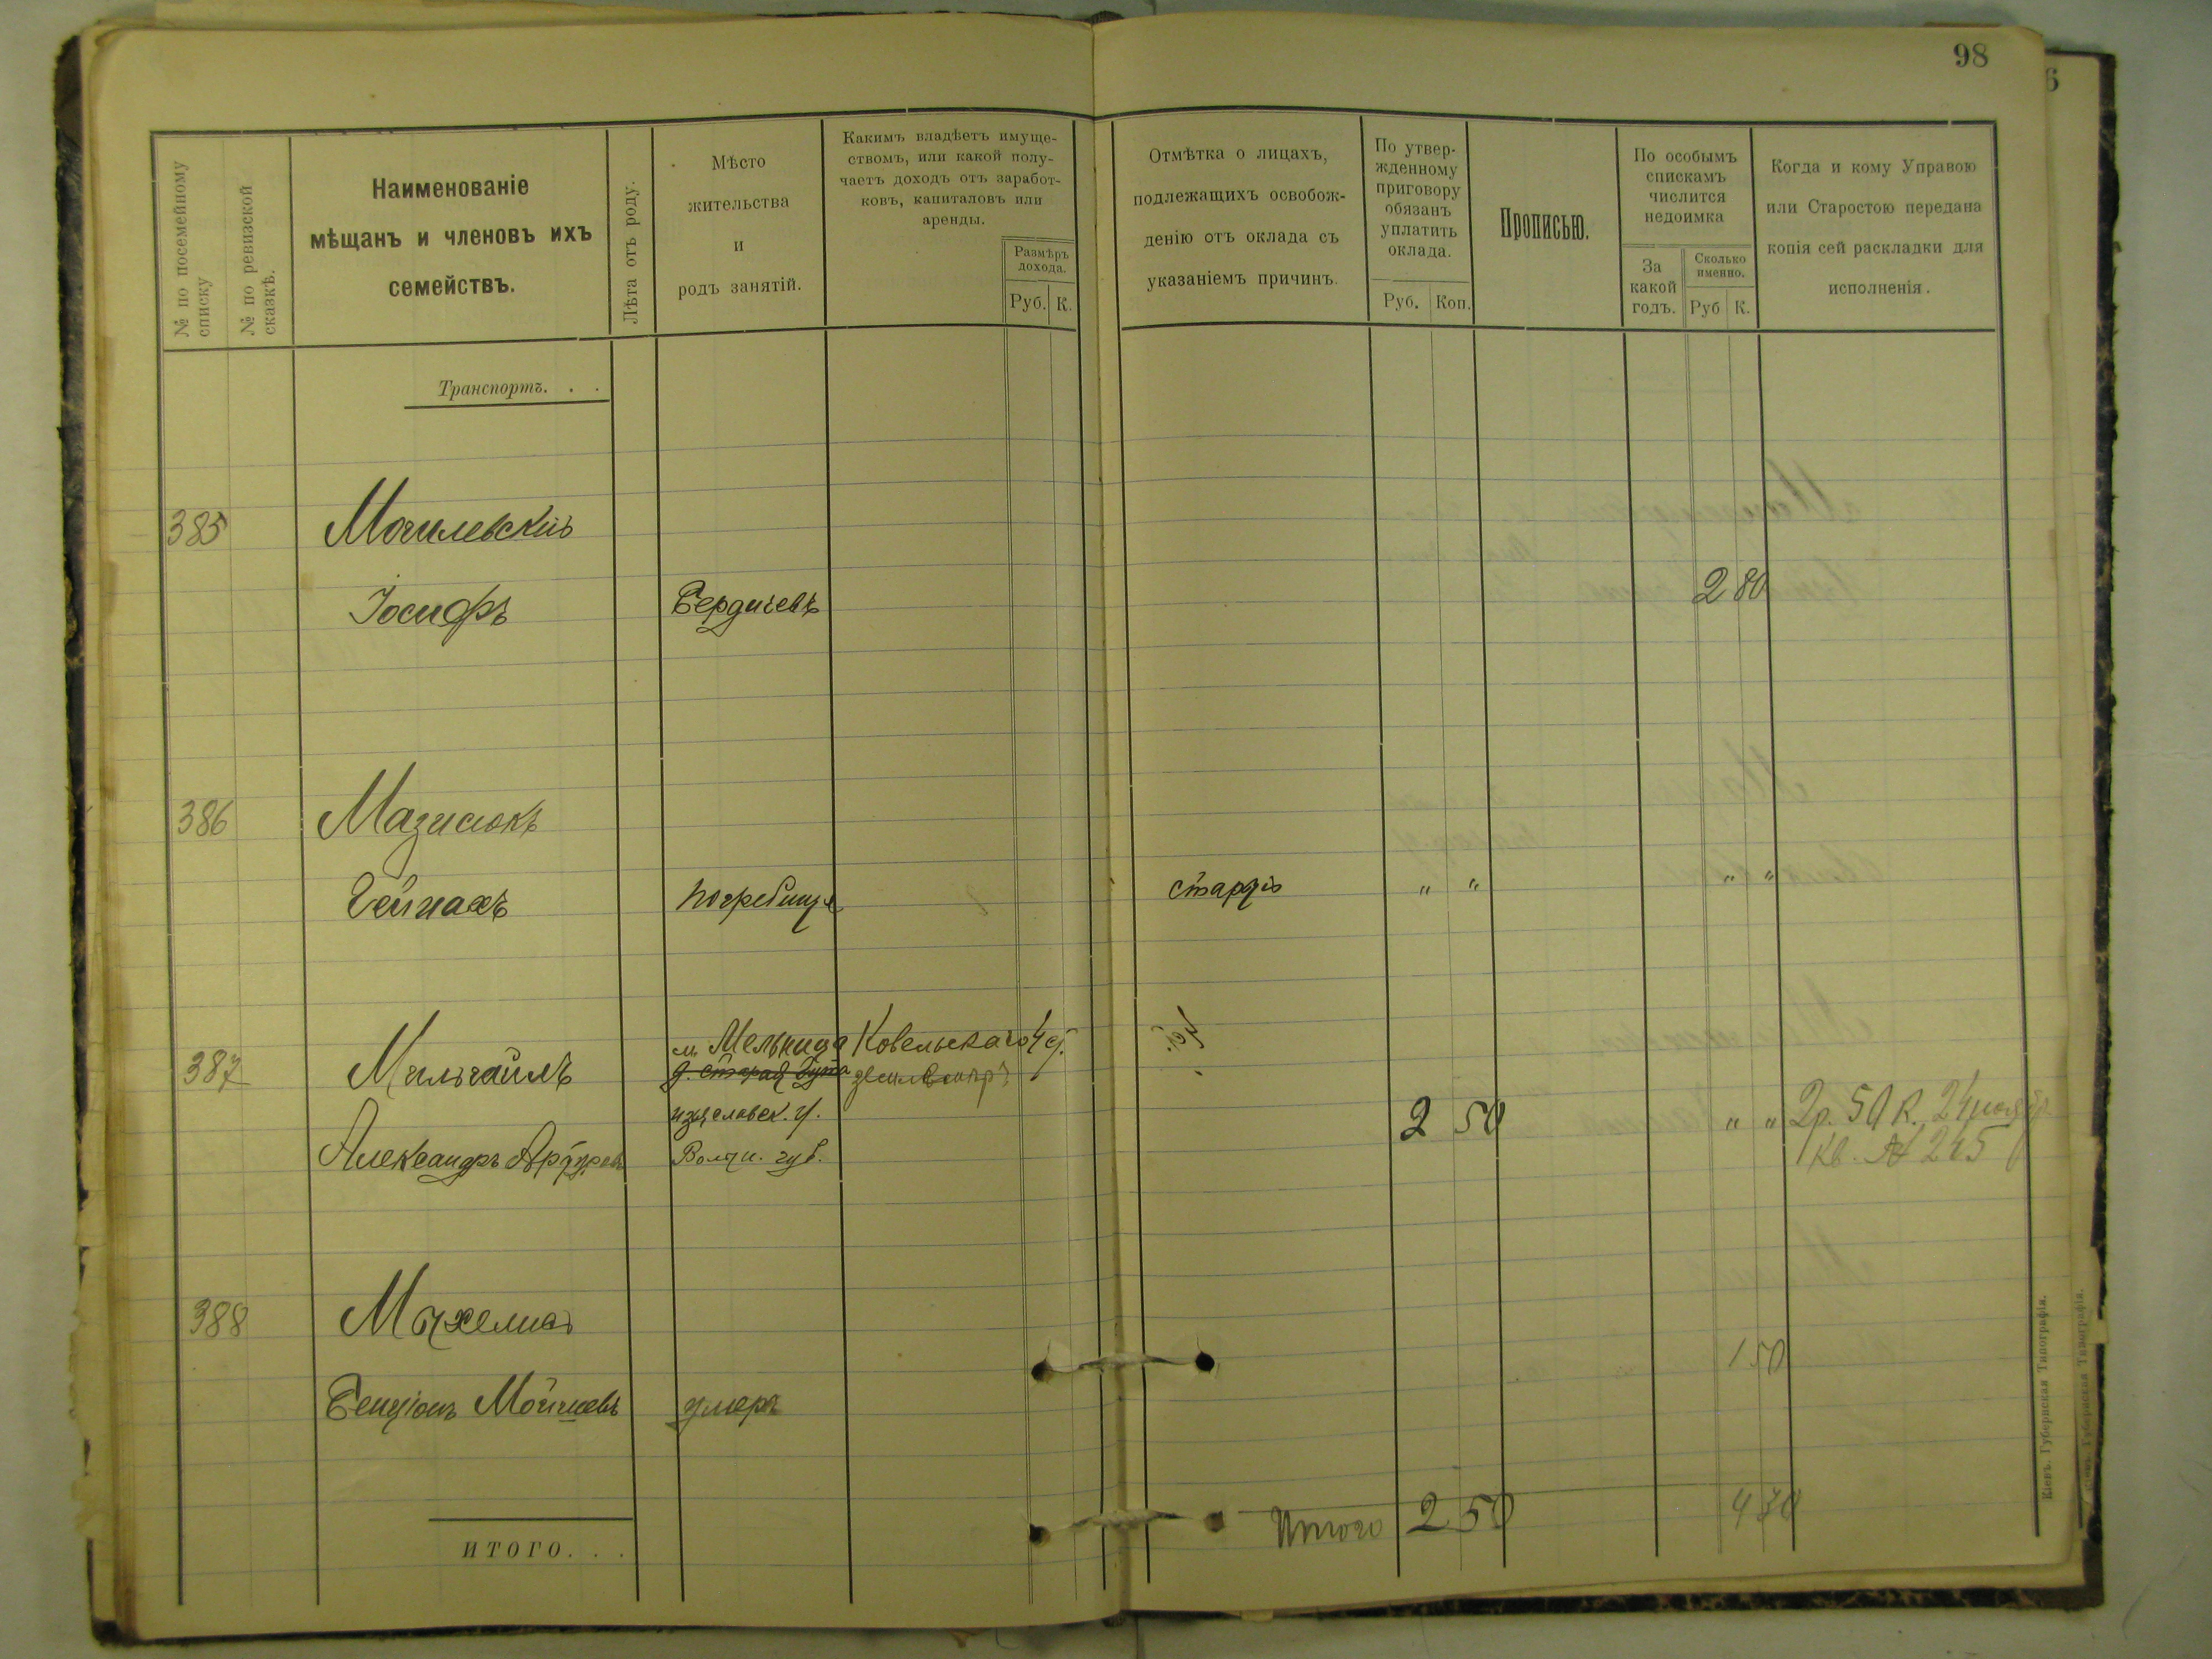 98
№ по посемейному списку
№ по ревизской сказкѣ.
Наименованіе
мѣщанъ и членовъ ихъ
семействъ.
Лѣта отъ роду.
Мѣсто
жительства
и
родъ занятій.
Какимъ владѣетъ имуще-
ствомъ, или какой полу-
чаетъ доходъ отъ заработ-
ковъ, капиталовъ или
аренды.
Размѣръ
дохода.
Руб. К.
Отмѣтка о лицахъ,
подлежащихъ освобож-
денію отъ оклада съ
указаніемъ причинъ.
По утвер-
жденному
приговору
обязанъ
уплатить
оклада.
Руб. Коп.
Прописью.
По особымъ
спискамъ
числится
недоимка
За
какой
годъ.
Сколько
именно.
Руб К.
Когда и кому Управою
или Старостою передана
копія сей раскладки для
исполненія.
Транспортъ. . .
385 Могилевскій
Іосифъ Бердичевъ 2 80
386
погребище " " " "
387
м. Мельница Ковельскаго у.
д. Старая Гута
изяславск. у.
Александръ Волын. губ. 2 50 " " 2р. 50 к. 24 ноября
кв. № 245
388
1 50
Бенціонъ Мойшевъ умеръ
Итого 2 50 4 30
ИТОГО. . .
Кіевъ. Губернская Типографія.